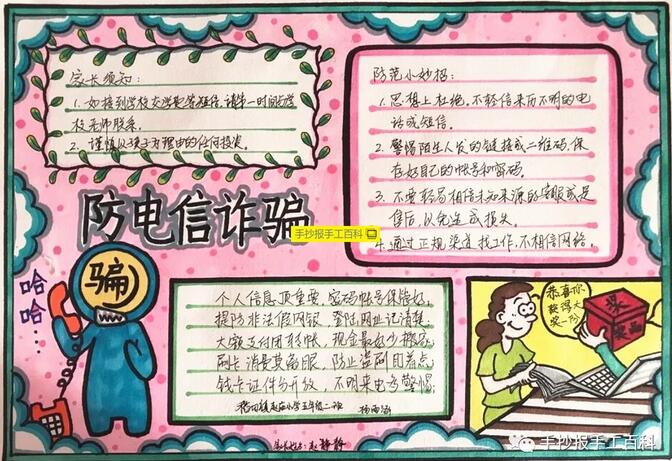 家长须知：
1. 如接到学校交学费等短信，请第一时间与学
校老师联系。
2. 谨慎以孩子为理由的任何投资。
防范小妙招：
1. 思想上杜绝，不轻信来历不明的电
话或短信。
2. 警惕陌生人发的链接或二维码，保
存好自己的帐号和密码。
3. 不要轻易相信未知来源的客服或是
售后，以免造成损失。
4. 通过正规渠道找工作，不相信网络。
防电信诈骗
手抄报手工百科
骗
哈
哈…
个人信息顶重要，密码帐号保管好，
提防非法假网银，登陆网址记清楚，
大额支付团转帐，现金最好少搬
刷卡消费莫偷眼，防止盗刷盯着点，
钱卡证件分开放，不明来电多警惕
小学五年级二班
恭喜你
获得大
奖一份
奖品
手抄报手工百科